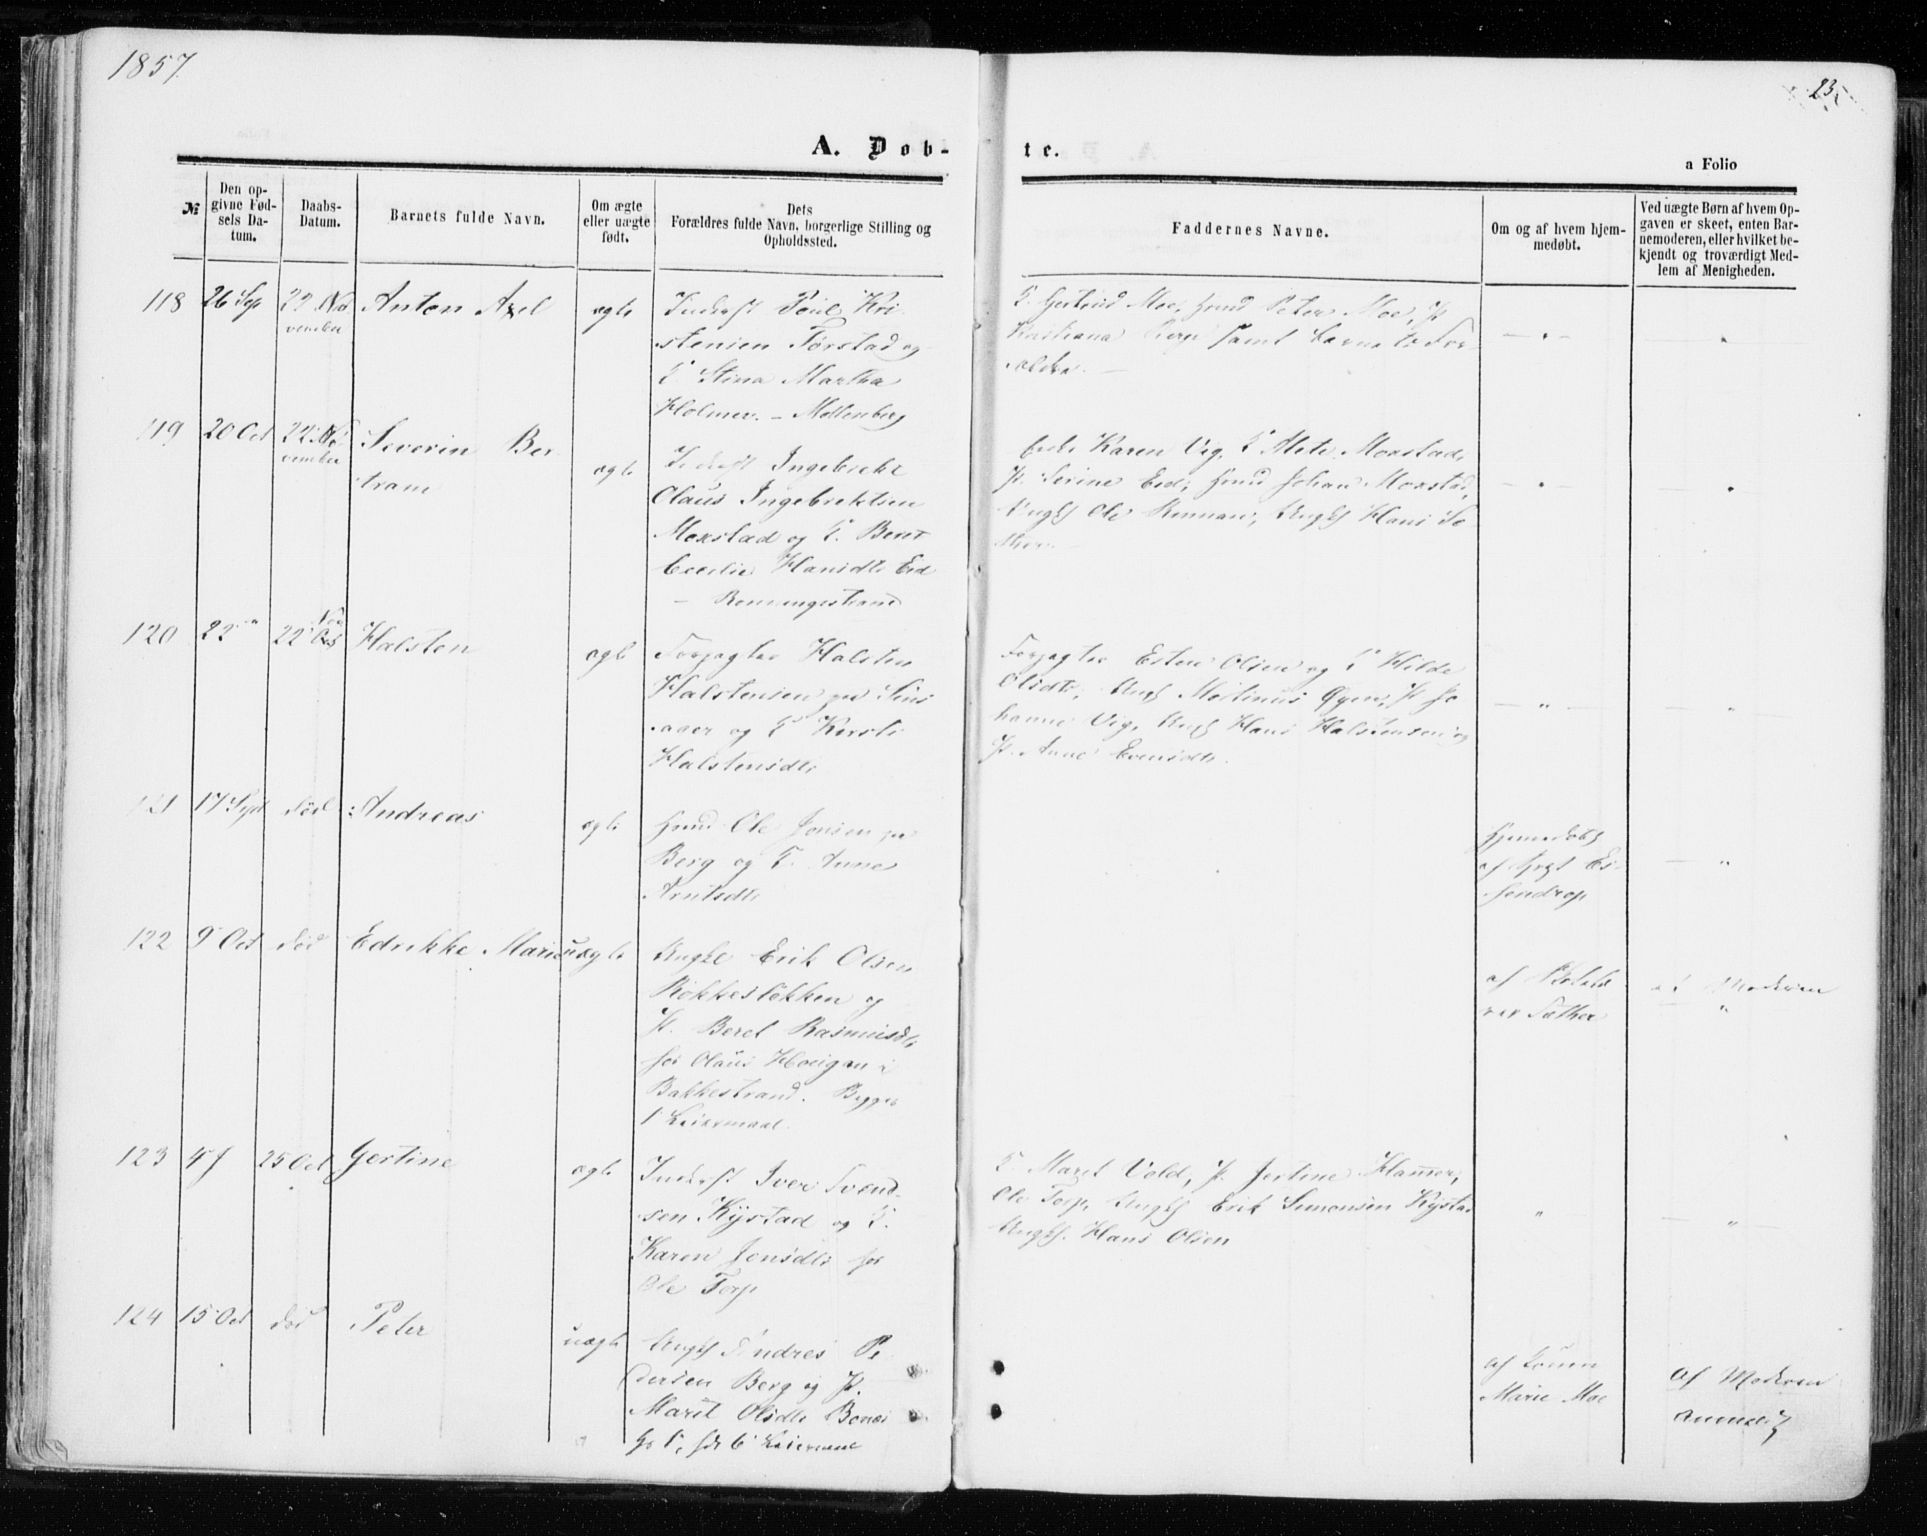 1857
23
A. Døb-
te.
a Folio
№
Den op-
givne Fød-
sels Da-
tum.
Daabs-
Datum.
Barnets fulde Navn.
Om ægte
eller uægte
født.
Dets
Forældres fulde Navn, borgerlige Stilling og
Opholdssted.
Faddernes Navne.
Om og af hvem hjem-
medøbt.
Ved uægte Børn af hvem Op-
gaven er skeet, enten Bar-
nemoderen, eller hvilket be-
kjendt og troværdigt Med-
lem af Menigheden.
118
26 Sep
22 No
vember
Anton Axel
ægte
Inderst Poul Kri
stensen Forstad og
K. Stina Martha
Holmer. - Mollenberg
K. Gertrud Moe, Gmd Peter Moe, P.
samt barnets For
ældre.
119
20 Oct
22 No
vember
Severin Ber
tram
ægte
Inderst Ingebrekt
Claus Ingebrektsen
Moxstad og K. Beret
Cecilie Hansdtr Eid
- Ronningestrand
Enke Karen Vig, K. Mete Moxstad,
P. Serine Eid, Gmd Johan Moxstad,
Ungk Ole Ungk Hans Sæ
ther.
120
22 "
22 Nov
Halsten
ægte
Forpagter Halsten
Halstensen
og K Kirsti
Halstensdtr
Forpagter Esten Olsen og K Hilde
Olsdtr, Ungk Martinus Øyen, P. Jo
hanne Vig, Ungk Hans Halstensen og
P. Anne Evensdtr.
121
17 Sept
død
Andreas
ægte
Gmd Ole Jonsen paa
Berg og K. Anne
Arntsdtr
Hjemmedøbt
af Prst Es-
sendrop
122
9 Oct
død
Edrikke Marie
uægte
Ungkl Erik Olsen
Røkkesløkken og
P. Beret Rasmusdtr
for Claus Hougan i
Bakkestrand. Begges
1 Leiermaal.
af Skolelæ
rer Sæther
af Moderen
123
4 J
25 Oct
Gertine
ægte
Inderst Iver Svend-
sen Kystad og K.
Karen Jensdtr for
Ole Torp
K. Maret Vold, P. Jertine Hammer,
Ole Torp, Ungk Erik Simonsen Kystad
Ungk. Hans Olsen
124
15 Oct
død
Peter
uægte
Ungk Andres Pe
dersen Berg og P.
Marit Olsdtr
Leiermaal
af
Marie Moe
Af Moderen
anmeldt